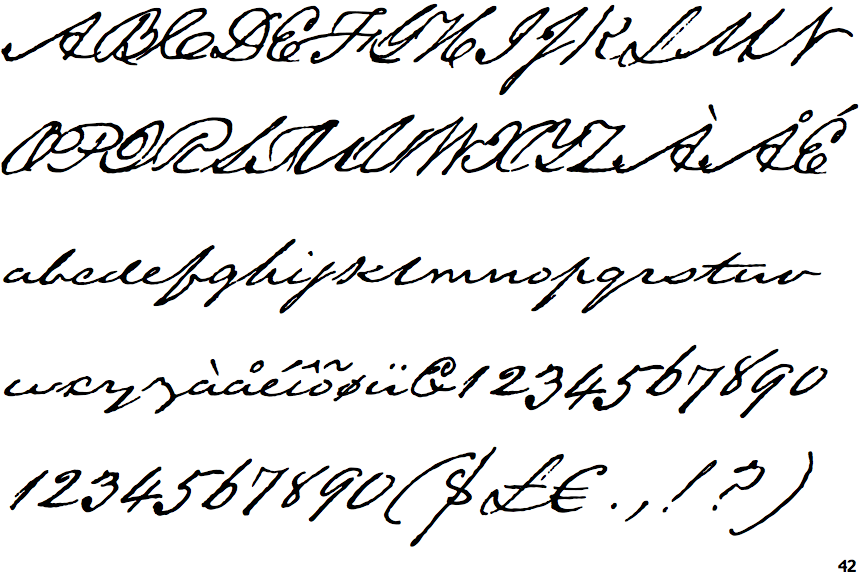 ABCDEFGHIJKLMN
OPQRSTUVWXYZÀÅÉ
abcdefghijklmnopqrstuv
wxyzàåéíôõøüï&1234567890
1234567890($£€.,!?)
42